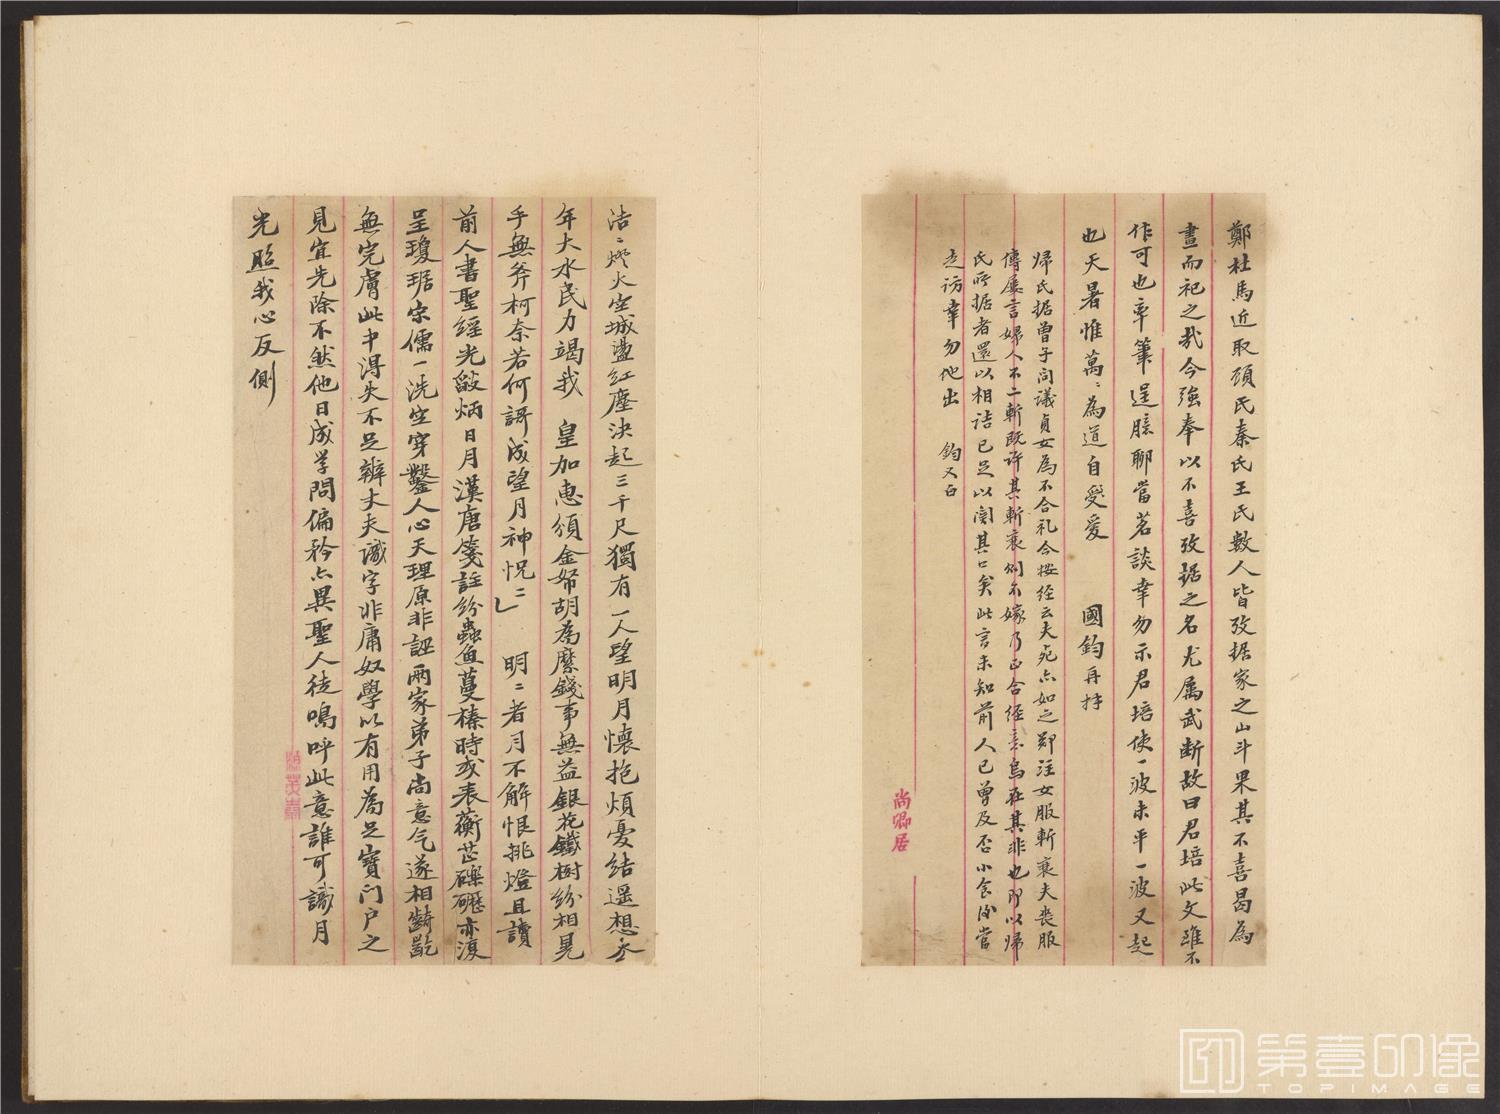 鄭杜馬近取顧氏秦氏王氏數人皆攷据家之山斗果其不喜曷為
畫而祀之哉今強奉以不喜攷据之名尤属武断故曰君培此文雖不
作可也率筆逞臆聊當茗談幸勿示君培使一波未平一波又起
也天暑惟萬〻為道自愛愛 國鈞再拜
歸氏据曾子问議貞女為不合礼今按经云夫死亦如之郑注女服斬衰夫丧服
傳屢言婦人不二斬既许其斬衰则不嫁乃正合经意烏在其非也即以歸
氏所据者還以相诘已足以闗其口矣此言未知前人已曾及否小食後當
走访幸勿他出 鈞又白
尚卿居
沽〻燈火空城盪红塵決起三千尺獨有一人望明月懷抱煩憂结遥想去
年大水民力竭我 皇加惠頒金帑胡為縻錢事無益銀花鐵樹纷相晃
手無斧柯奈若何謌成望月神怳〻 明〻者月不解恨挑燈且讀
前人書聖經光燄炳日月漢唐箋註纷蟲魚蔓榛時或表蘅芷礫礰亦復
呈瓊琚宋儒一洗空穿鑿人心天理原非誣兩家弟子尚意气遂相齮齕
無完膚此中得失不足辨丈夫識字非庸奴學以有用為足寶门户之
見宜先除不然他日成学問偏矜亦異聖人徒鳴呼此意誰可識月
光照我心反側
第壹印像
TOPIMAGE